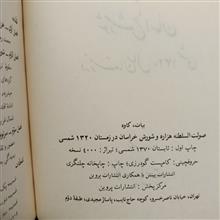 بیات، کاوه
صولت السلطنه هزاره و شورش خراسان در زمستان ۱۳۲۰ شمسی
چاپ اول : تابستان ۱۳۷۰ شمسی؛ تیراژ : ۴۰۰۰ نسخه
حروفچینی: کامپست گودرزی؛ چاپ : چاپخانه چلنگری
انتشارات پبنش با همکاری انتشارات پروین
مرکز پخش : انتشارات پروین
تهران، خیابان ناصرخسرو، کوچه حاج نایب، پاساژ مجیدی، طبقهٔ دوم